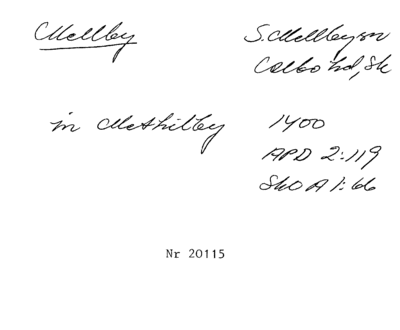 Mellby
S. Mellby sn
Calbo hd, Sk
in Methilby
1400
APD 2:119
SkO A 1:66
Nr 20115